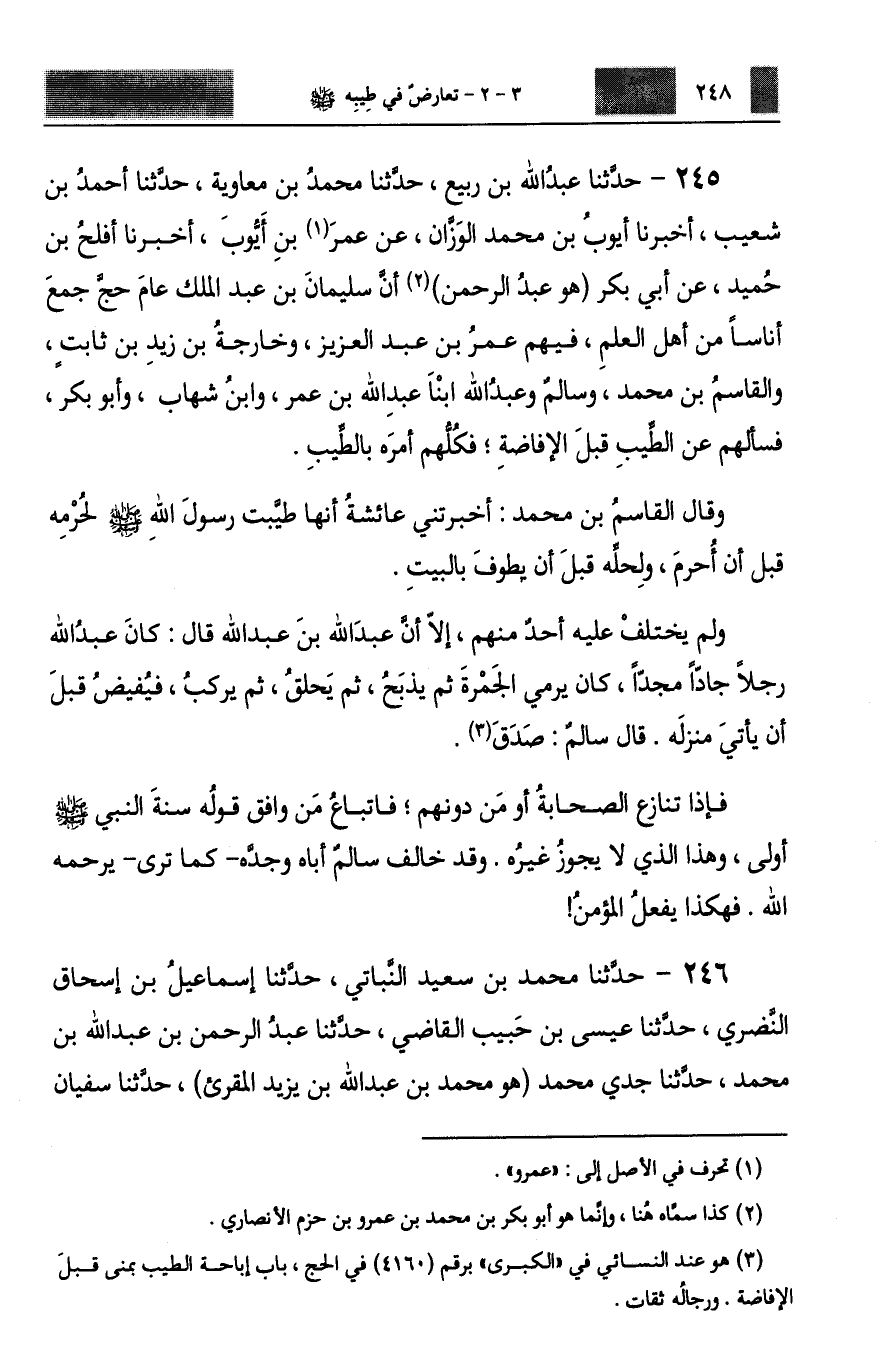 ٢٤٨
٣ - ٢ - تعارضٌ في طِيبِه ﷺ
٢٤٥ - حدَّثنا عبدُالله بن ربيع ، حدَّثنا محمدُ بن معاوية ، حدَّثنا أحمدُ بن
شعيب ، أخبرنا أيوبُ بن محمد الوَزَّان ، عن عمرَ(١) بنِ أَيُّوبَ ، أخبرنا أفلحُ بن
حُميد ، عن أبي بكر (هو عبدُ الرحمن)(٢) أنَّ سليمانَ بن عبد الملك عامَ حجَّ جمعَ
أناساً من أهل العلمِ ، فيهم عمرُ بن عبد العزيز ، وخارجةُ بن زيدِ بن ثابتٍ ،
والقاسمُ بن محمد ، وسالمٌ وعبدُالله ابنْاَ عبدِالله بن عمر ، وابنُ شهاب ، وأبو بكر ،
فسألهم عن الطِّيبِ قبلَ الإفاضةِ ؛ فكُلُّهم أمرَه بالطِّيبِ .
وقال القاسمُ بن محمد : أخبرتني عائشةُ أنها طيَّبت رسولَ اللهِ ﷺ لحُرْمِه
قبل أن أُحرمَ ، ولِحلِّه قبلَ أن يطوفَ بالبيتِ .
ولم يختلفْ عليه أحدٌ منهم ، إلاّ أنَّ عبدَالله بنَ عبدالله قال : كانَ عبدُالله
رجلاً جادّاً مجدّاً ، كان يرمي الجَمْرةَ ثم يذبَحُ ، ثم يَحلقُ ، ثم يركبُ ، فيُفيضُ قبلَ
أن يأتيَ منزلَه . قال سالمٌ : صَدَقَ(٣) .
فإذا تنازع الصحابةُ أو مَن دونهم ؛ فاتباعُ مَن وافق قولُه سنةَ النبي ﷺ
أولى ، وهذا الذي لا يجوزُ غيرُه . وقد خالف سالمٌ أباه وجدَّه- كما ترى- يرحمه
الله . فهكذا يفعلُ المؤمنُ!
٢٤٦ - حدَّثنا محمد بن سعيد النَّباتي ، حدَّثنا إسماعيلُ بن إسحاق
النَّضري ، حدَّثنا عيسى بن حَبيب القاضي ، حدَّثنا عبدُ الرحمن بن عبدالله بن
محمد ، حدَّثنا جدي محمد (هو محمد بن عبدالله بن يزيد المقرئ) ، حدَّثنا سفيان
(١) تحرف في الأصل إلى : «عمرو» .
(٢) كذا سمَّاه هُنا ، وإنَّما هو أبو بكر بن محمد بن عمرو بن حزم الأنصاري .
(٣) هو عند النسائي في «الكبرى» برقم (٤١٦٠) في الحج ، باب إباحة الطيب بمنى قبلَ
الإفاضة . ورجالُه ثقات .